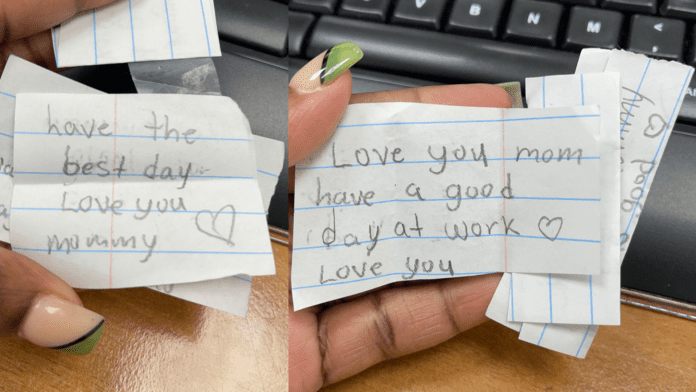 have the
best day
Love you
mommy
Love you mom
have a good
day at work
Love you
V
B
N
M